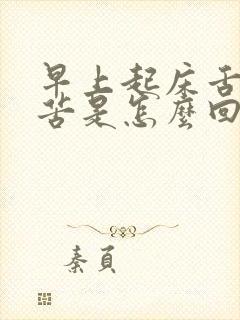 早上起床舌
苦是怎麼回
秦頁